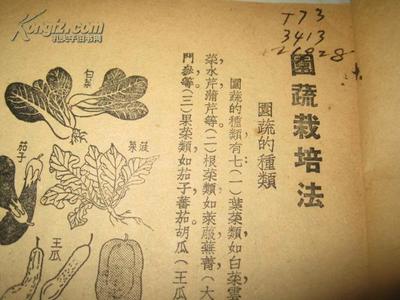 T73
3413
26828
園蔬栽培法
園蔬的種類
園蔬的種類有七(一)葉菜類如白菜
菜水芹蒲芹等(二)根菜類如萊菔蕪菁(大
門參等(三)果菜類如茄子蕃茄胡瓜(王瓜
白菜
菠菜
茄子
王瓜